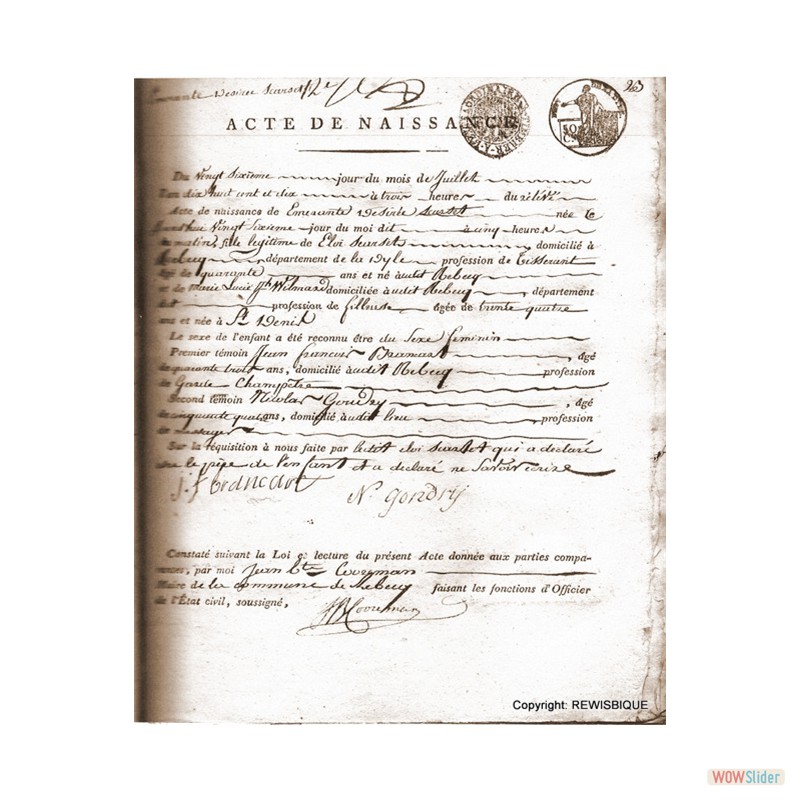 Désiré Scarset
23
ACTE DE NAISSANCE
Du Vingt Sixieme jour du mois de Juillet
L'an dix huit cent et dix à trois heures du
Acte de naissance de Emerante Desirée Scarset née le
Vingt Sixieme jour du mois dit à cinq heures
du matin, fille legitime de Eloi Scarset domicilié à
Rebecq département de la Dyle profession de Tisserant
âgé de quarante ans et né audit Rebecq
et de Marie Lucie Jph Wilmard domiciliée audit Rebecq département
dit profession de fileuse âgée de trente quatre
ans et née à St Denis
Le sexe de l'enfant a été reconnu être du Sexe feminin
Premier témoin Jean francois , âgé
de quarante trois ans, domicilié audit Rebecq profession
de Garde Champêtre
Second témoin Nicolas Gondry , âgé
de cinquante quatre ans, domicilié audit lieu , profession
de messager
Sur la réquisition à nous faite par ledit Eloi Scarset qui a declaré
etre le pere de l'enfant et a declaré ne savoir ecrire
J. f
N. gondrij
Constaté suivant la Loi et lecture du présent Acte donnée aux parties compa-
rentes, par moi Jean Bte Cooreman
Maire de la commune de Rebecq faisant les fonctions d'Officier
de l'État civil, soussigné,
JB Cooreman
Copyright: REWISBIQUE
WOWSlider